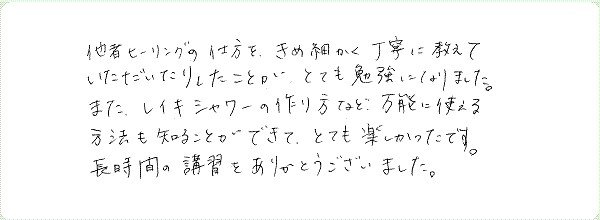 他者ヒーリングの仕方を、きめ細かく丁寧に教えて
いただいたりしたことが、とても勉強になりました。
また、レイキシャワーの作り方など、万能に使える
方法も知ることができて、とても楽しかったです。
長時間の講習をありがとうございました。